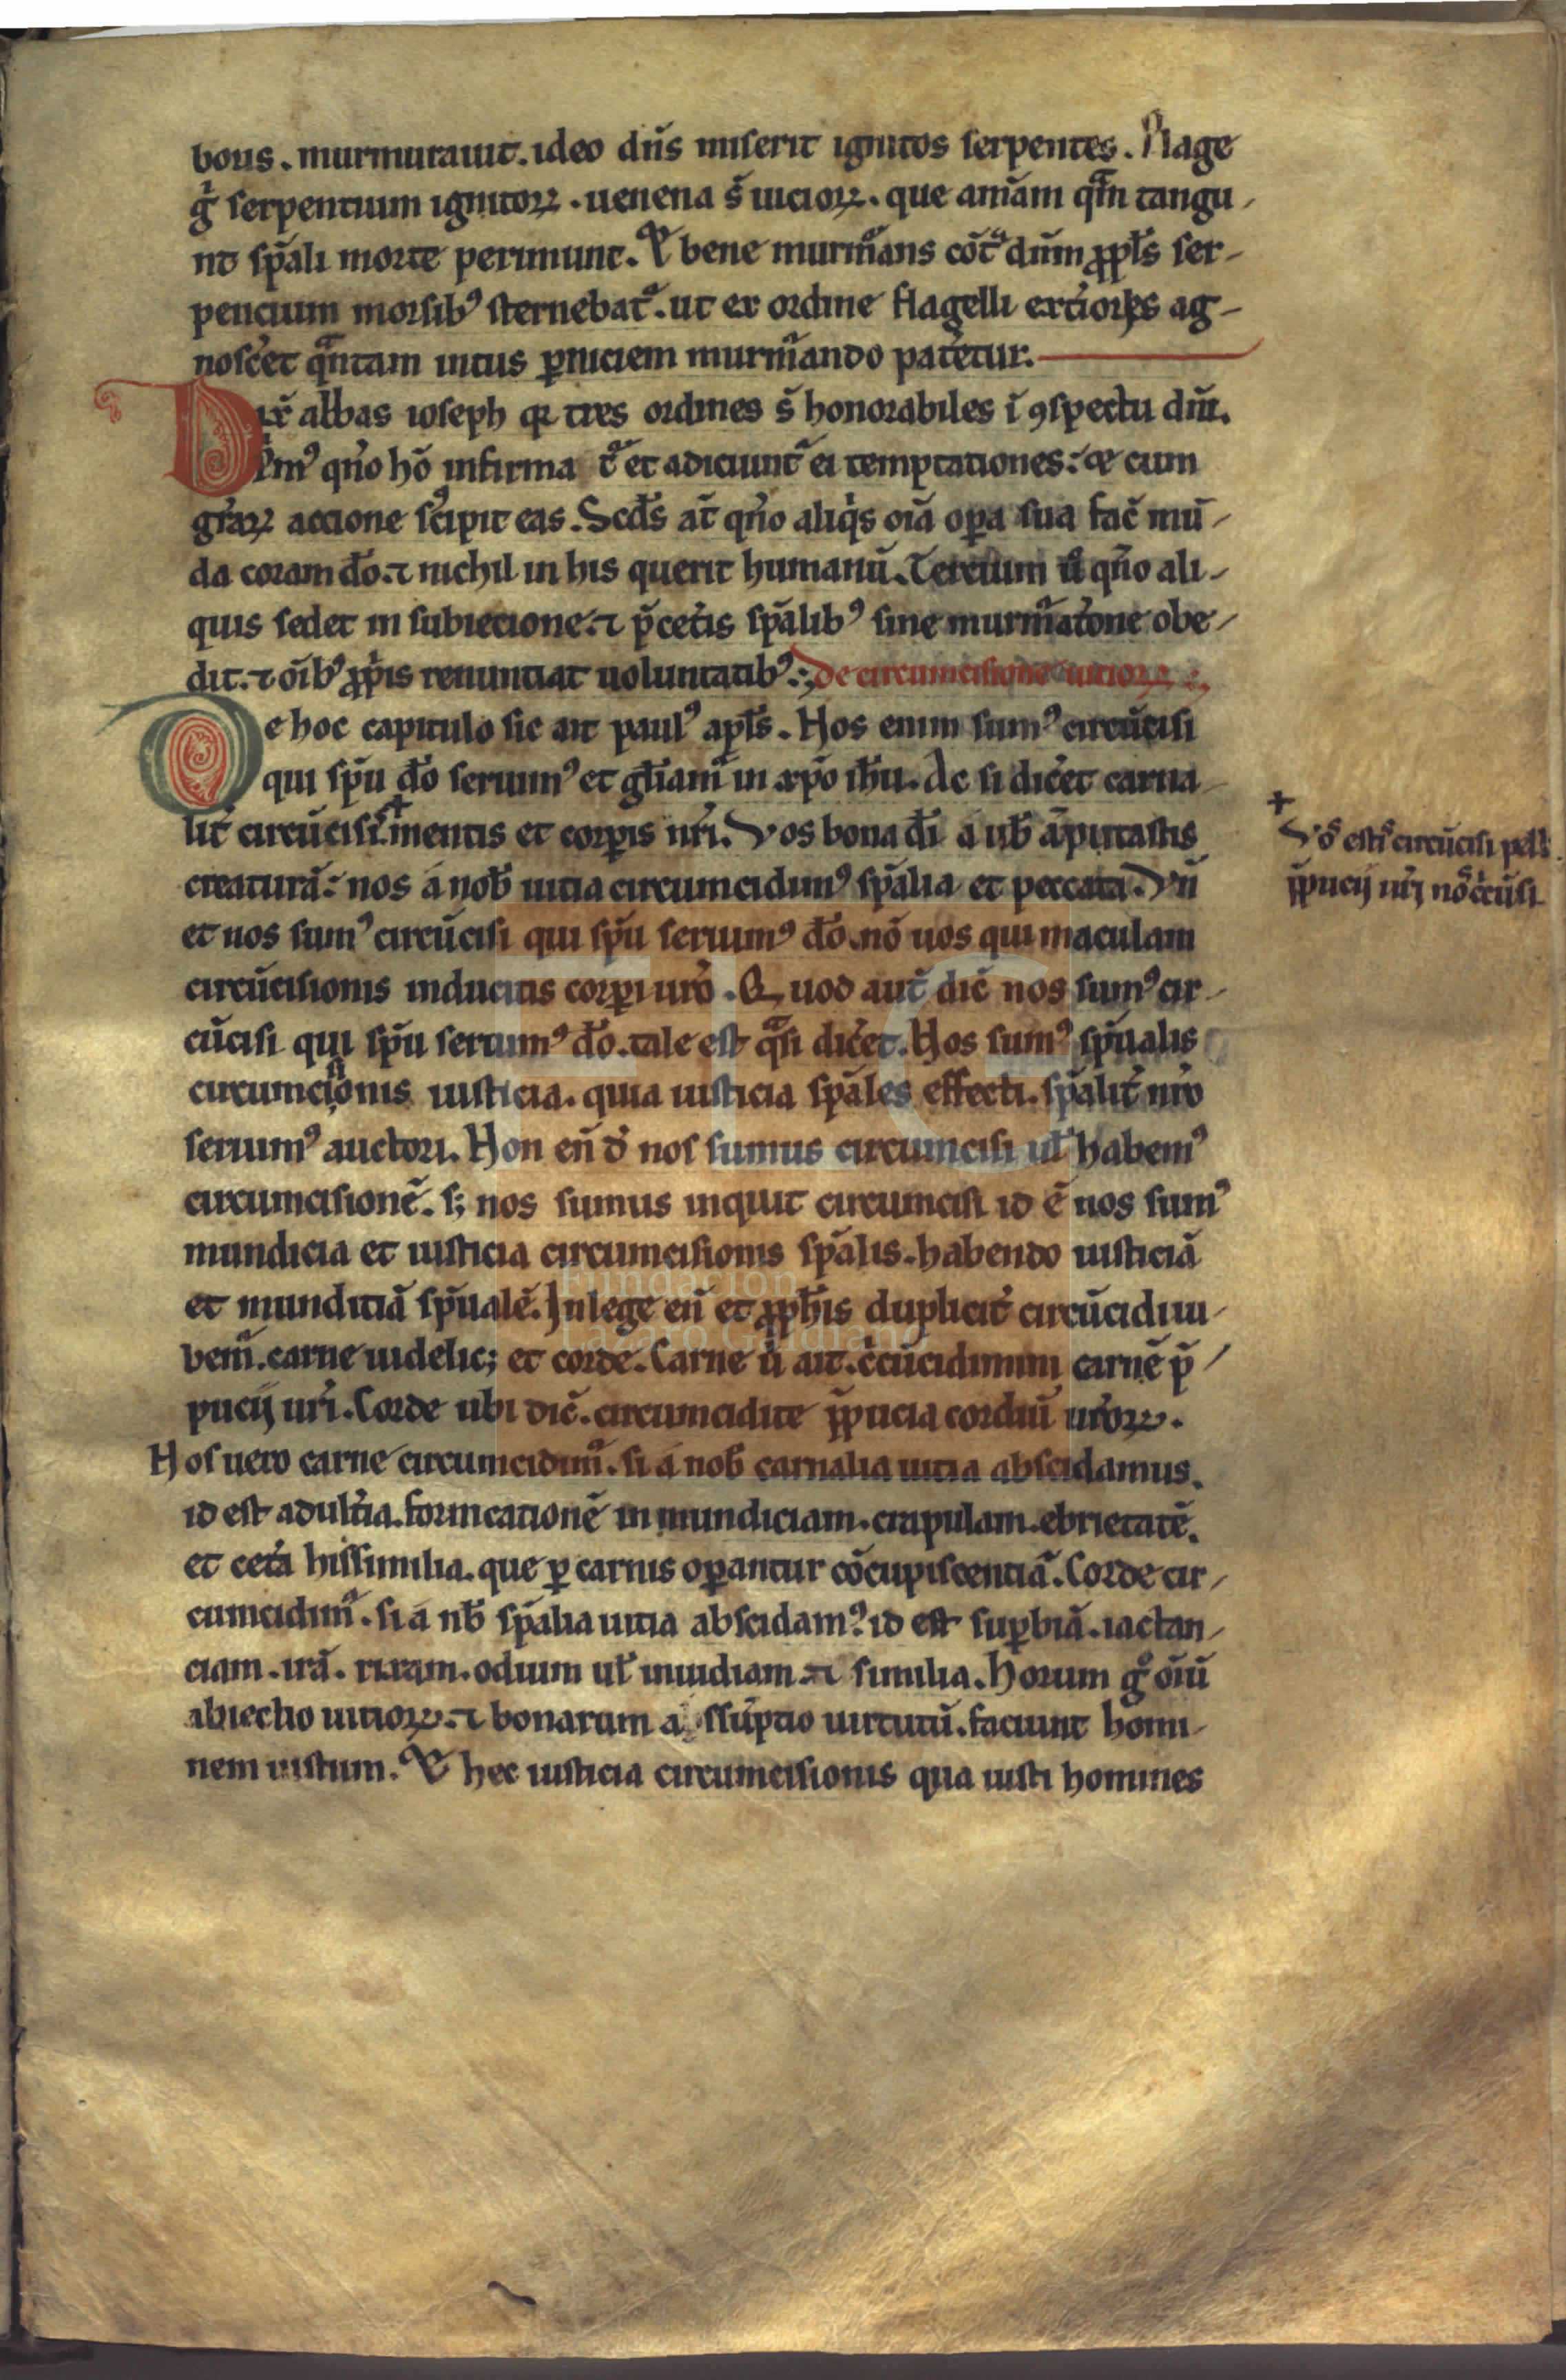 borıs. murmurauit. ideo dn̄s miserit ignitos serpentes. Plage
g̊ serpentium ignitoꝝ. uenena s̄ uicioꝝ. que am̄am qᵃm tangu-
nt sp̄ali morte perimunt. Et bene murmᵃans cōtᵃ dn̄m ꝓpls̄ ser-
pencium morsibꝰ sternebatᷣ. ut ex ordine flagelli exᵗiorꝭs ag-
nosc̄et qᵃntam intus ꝑniciem murmᵃando pat̄etur.
Dix̄ abbas ioseph qꝛ tres ordines s̄ honorabiles ī ꝯspectu dn̄i.
Pⁱmꝰ qn̄o hō infirmatᷣ et adiciuntᷣ ei temptationes: et cum
gr̄aꝝ accione sꝰcipit eas. Scd̄s aūt qn̄o aliqⁱs oīa oꝑa sua fac̄ mū-
da coram dō. ⁊ nichil in his querit humanū. Tercium ū qn̄o ali-
quis sedet in subiectione. ⁊ p̄cet̄is sp̄alibꝰ sine murmᵃatōne obe-
dit. ⁊ oīb̄ꝰ ꝓpⁱis renuntiat uoluntatibꝰ. De circumcisione uicioꝝ
De hoc capitulo sic ait paulꝰ apls̄. Nos enim sumꝰ circūcisi
qui sp̄u dō seruimꝰ et gl̄iamᷣ in xp̄o ih̄u. Ac si dic̄et carna-
lit̄ circūcisi. mentis et corꝑis nr̄i. Vos bona dī a uob̄ āputastis
creaturā: nos a nob̄ uitia circumcidimꝰ sp̄alia et peccata. Vn̄
et nos sumꝰ circūcisi qui sp̄u seruimꝰ dō. nō uos qui maculam
circūcisionis inducitis corꝑi uro. Quod aut̄ dic̄ nos sumꝰ cir-
cūcisi qui sp̄u seruimꝰ dō. tale est qᵃsi dic̄et. Nos sumꝰ sp̄ualis
circumcisionis iusticia. quia iusticia sp̄ales effecti. sp̄alit̄ nr̄o
seruimꝰ auctori. Non en̄ d̄ nos sumus circumcisi ul̄ habemꝰ
circumcisionē. sꝫ nos sumus inquit circumcisi id ē nos sumꝰ
mundicia et iusticia circumcisionis sp̄alis. habendo iusticiā
et munditiā sp̄ualē. In lege en̄ et ꝓph̄is duplicit̄ circūcidi iu-
bemᷣ. carne uidelicꝫ et corde. Carne ū ait. cⁱcūcidimini carnē p̄-
pucij uri. Corde ubi dic̄. circumcidite p̄pucia cordiū uroꝝ.
Nos uero carne circumcidimᷣ. si a nob̄ carnalia uitia abscidamus.
id est adult̄ia. fornicationē inmundiciam. crapulam. ebrietatē.
et cet̄a hiis similia. que ꝑ carnis oꝑantur cōcupiscentiā. Corde cir-
cumcidimᷣ. si a nob̄ sp̄alia uitia abscidamꝰ. id est suꝑbiā. iactan-
ciam. irā. rixam. odium ul̄ inuidiam. ⁊ similia. Horum g̊ oīū
abiectio uitioꝝ. ⁊ bonarum assūptio uirtutū. faciunt homi-
nem iustum. Et hec iusticia circumcisionis qua iusti homines
+
Vos estis circūcisi
p̄pucij uri nō